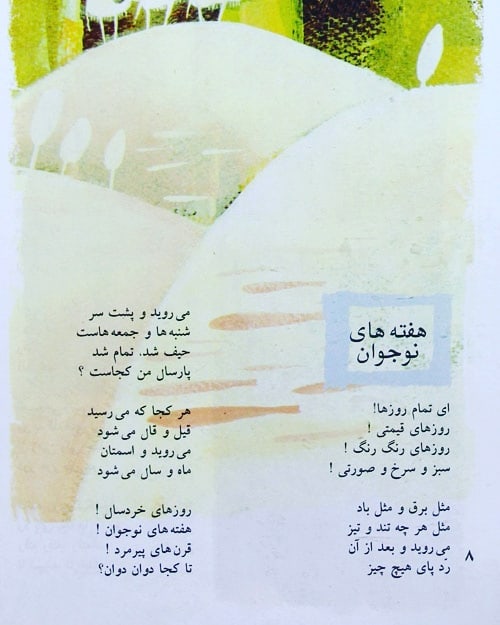 هفته های
نوجوان
ای تمام روزها!
روزهای قیمتی !
روزهای رنگ رنگ !
سبز و سرخ و صورتی !
مثل برق و مثل باد
مثل هر چه تند و تیز
می‌روید و بعد از آن
ردّ پای هیچ چیز
می‌روید و پشت سر
شنبه ها و جمعه هاست
حیف شد، تمام شد
پارسال من کجاست ؟
هر کجا که می‌رسید
قیل و قال می‌شود
می‌روید و اسمتان
ماه و سال می‌شود
روزهای خردسال !
هفته های نوجوان !
قرن های پیرمرد !
تا کجا دوان دوان؟
۸